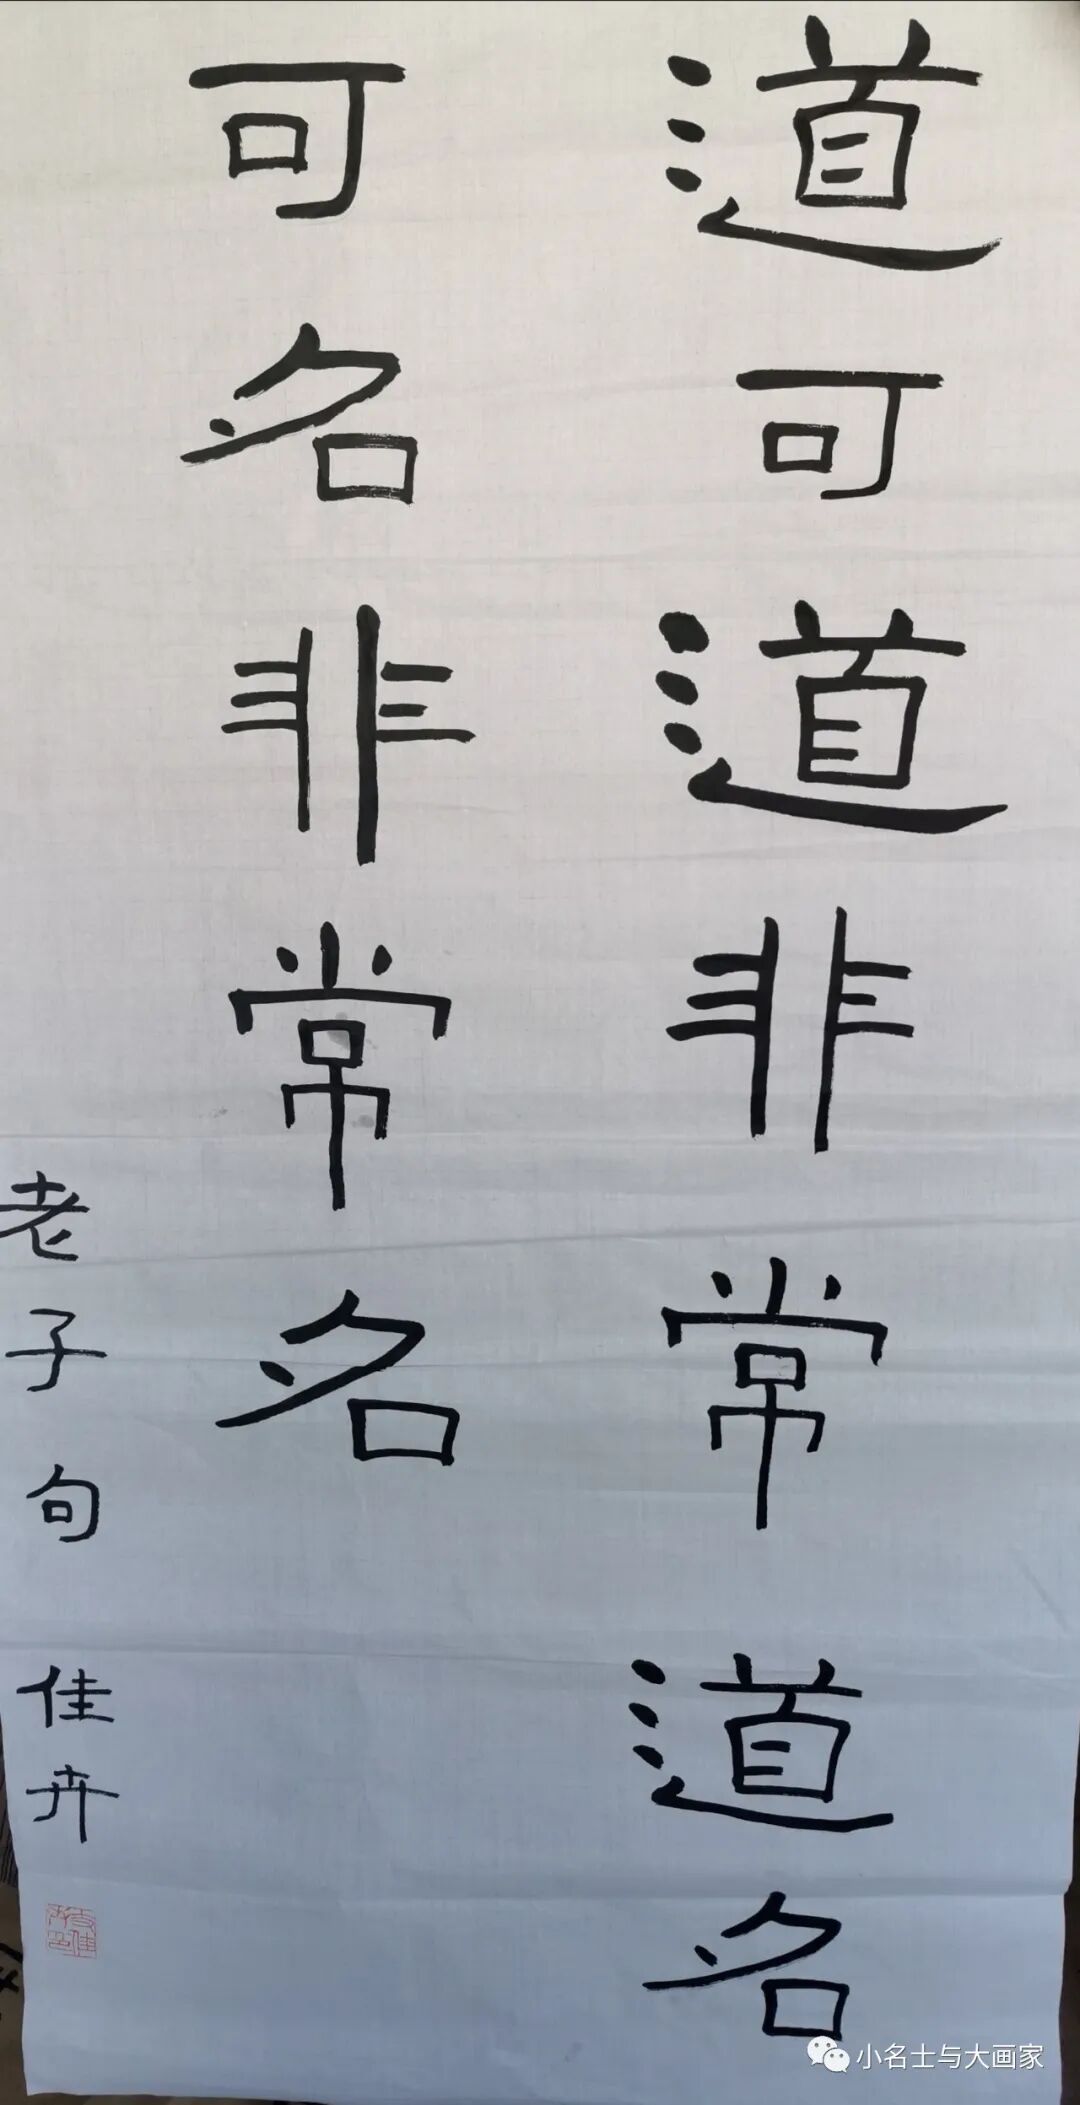 道可道非常道名
可名非常名
老子句 佳卉
小名士与大画家